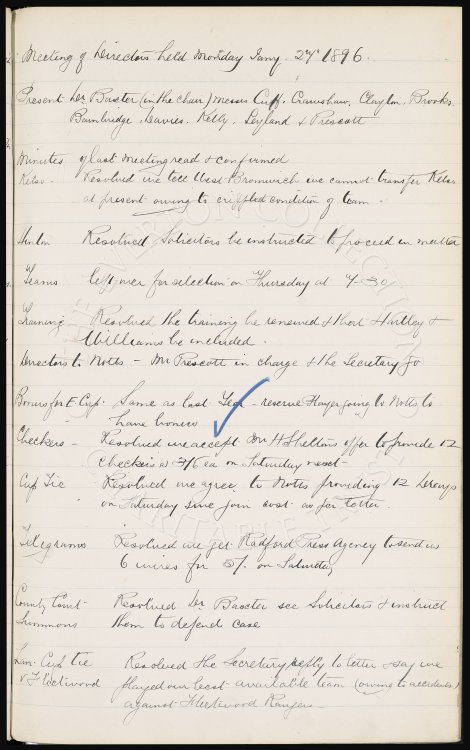 Meeting of Directors held Monday Jany. 27th 1896.
Present Dr Baxter (in the chair) Messrs Cuff, Crawshaw, Clayton, Brooks.
Bainbridge, Davies, Kelly, Leyland & Prescott
Minutes of last meeting read & confirmed
Kelso - Resolved we tell West Bromwich we cannot transfer Kelso
at present owing to crippled condition of team -
Resolved Solicitors be instructed to proceed in matter
Teams left over for selection on Thursday at 7-30
Training - Resolved the training be renewed & that Hartley &
Williams be included.
Directors to Notts - Mr Prescott in charge & the Secretary go
Bonus for E. Cup. Same as last Year - reserve Player going to Notts to
have bonus
Checkers - Resolved we accept Mr H Shelton's offer to provide 12
checkers @ 7/6 ea on Saturday next -
Cup Tie - Resolved we agree to Notts providing 12
on Saturday joint cost as per letter.
Telegrams Resolved we get Radford Press Agency to send us
6 wires for 5/- on Saturday
County Court Resolved Dr Baxter see Solicitors & instruct
Summons them to defend case
Lan: Cup tie Resolved the Secretary reply to letter & say we
v Fleetwood played our best available team (owing to accidents)
against Fleetwood Rangers -
THE EVERTON COLLECTION
CHARITABLE TRUST